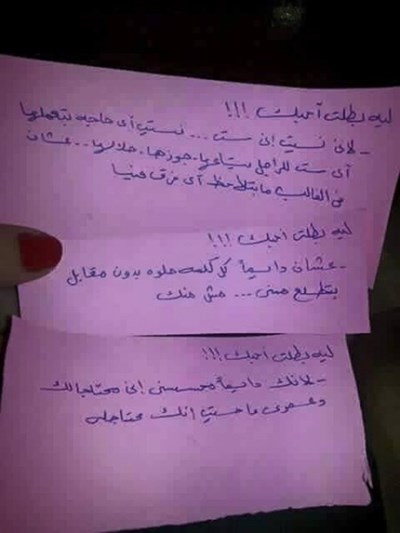 ليه بطلت أحبك !!!
- لانى نسيت إنى ست ... نسيت أى حاجه بتعملها
أى ست للراجل بتاعها - جوزها - حلالها .. عشان
فى الغالب مابتلاحظ أى فرق فيا
ليه بطلت احبك !!!
- عشان دايماً كل كلمه حلوه بدون مقابل
بتطلع منى ... مش منك
ليه بطلت احبك !!!
- لانك دايماً محسسنى إنى محتاجالك
وعمرى ما حسيت إنك محتاجلى